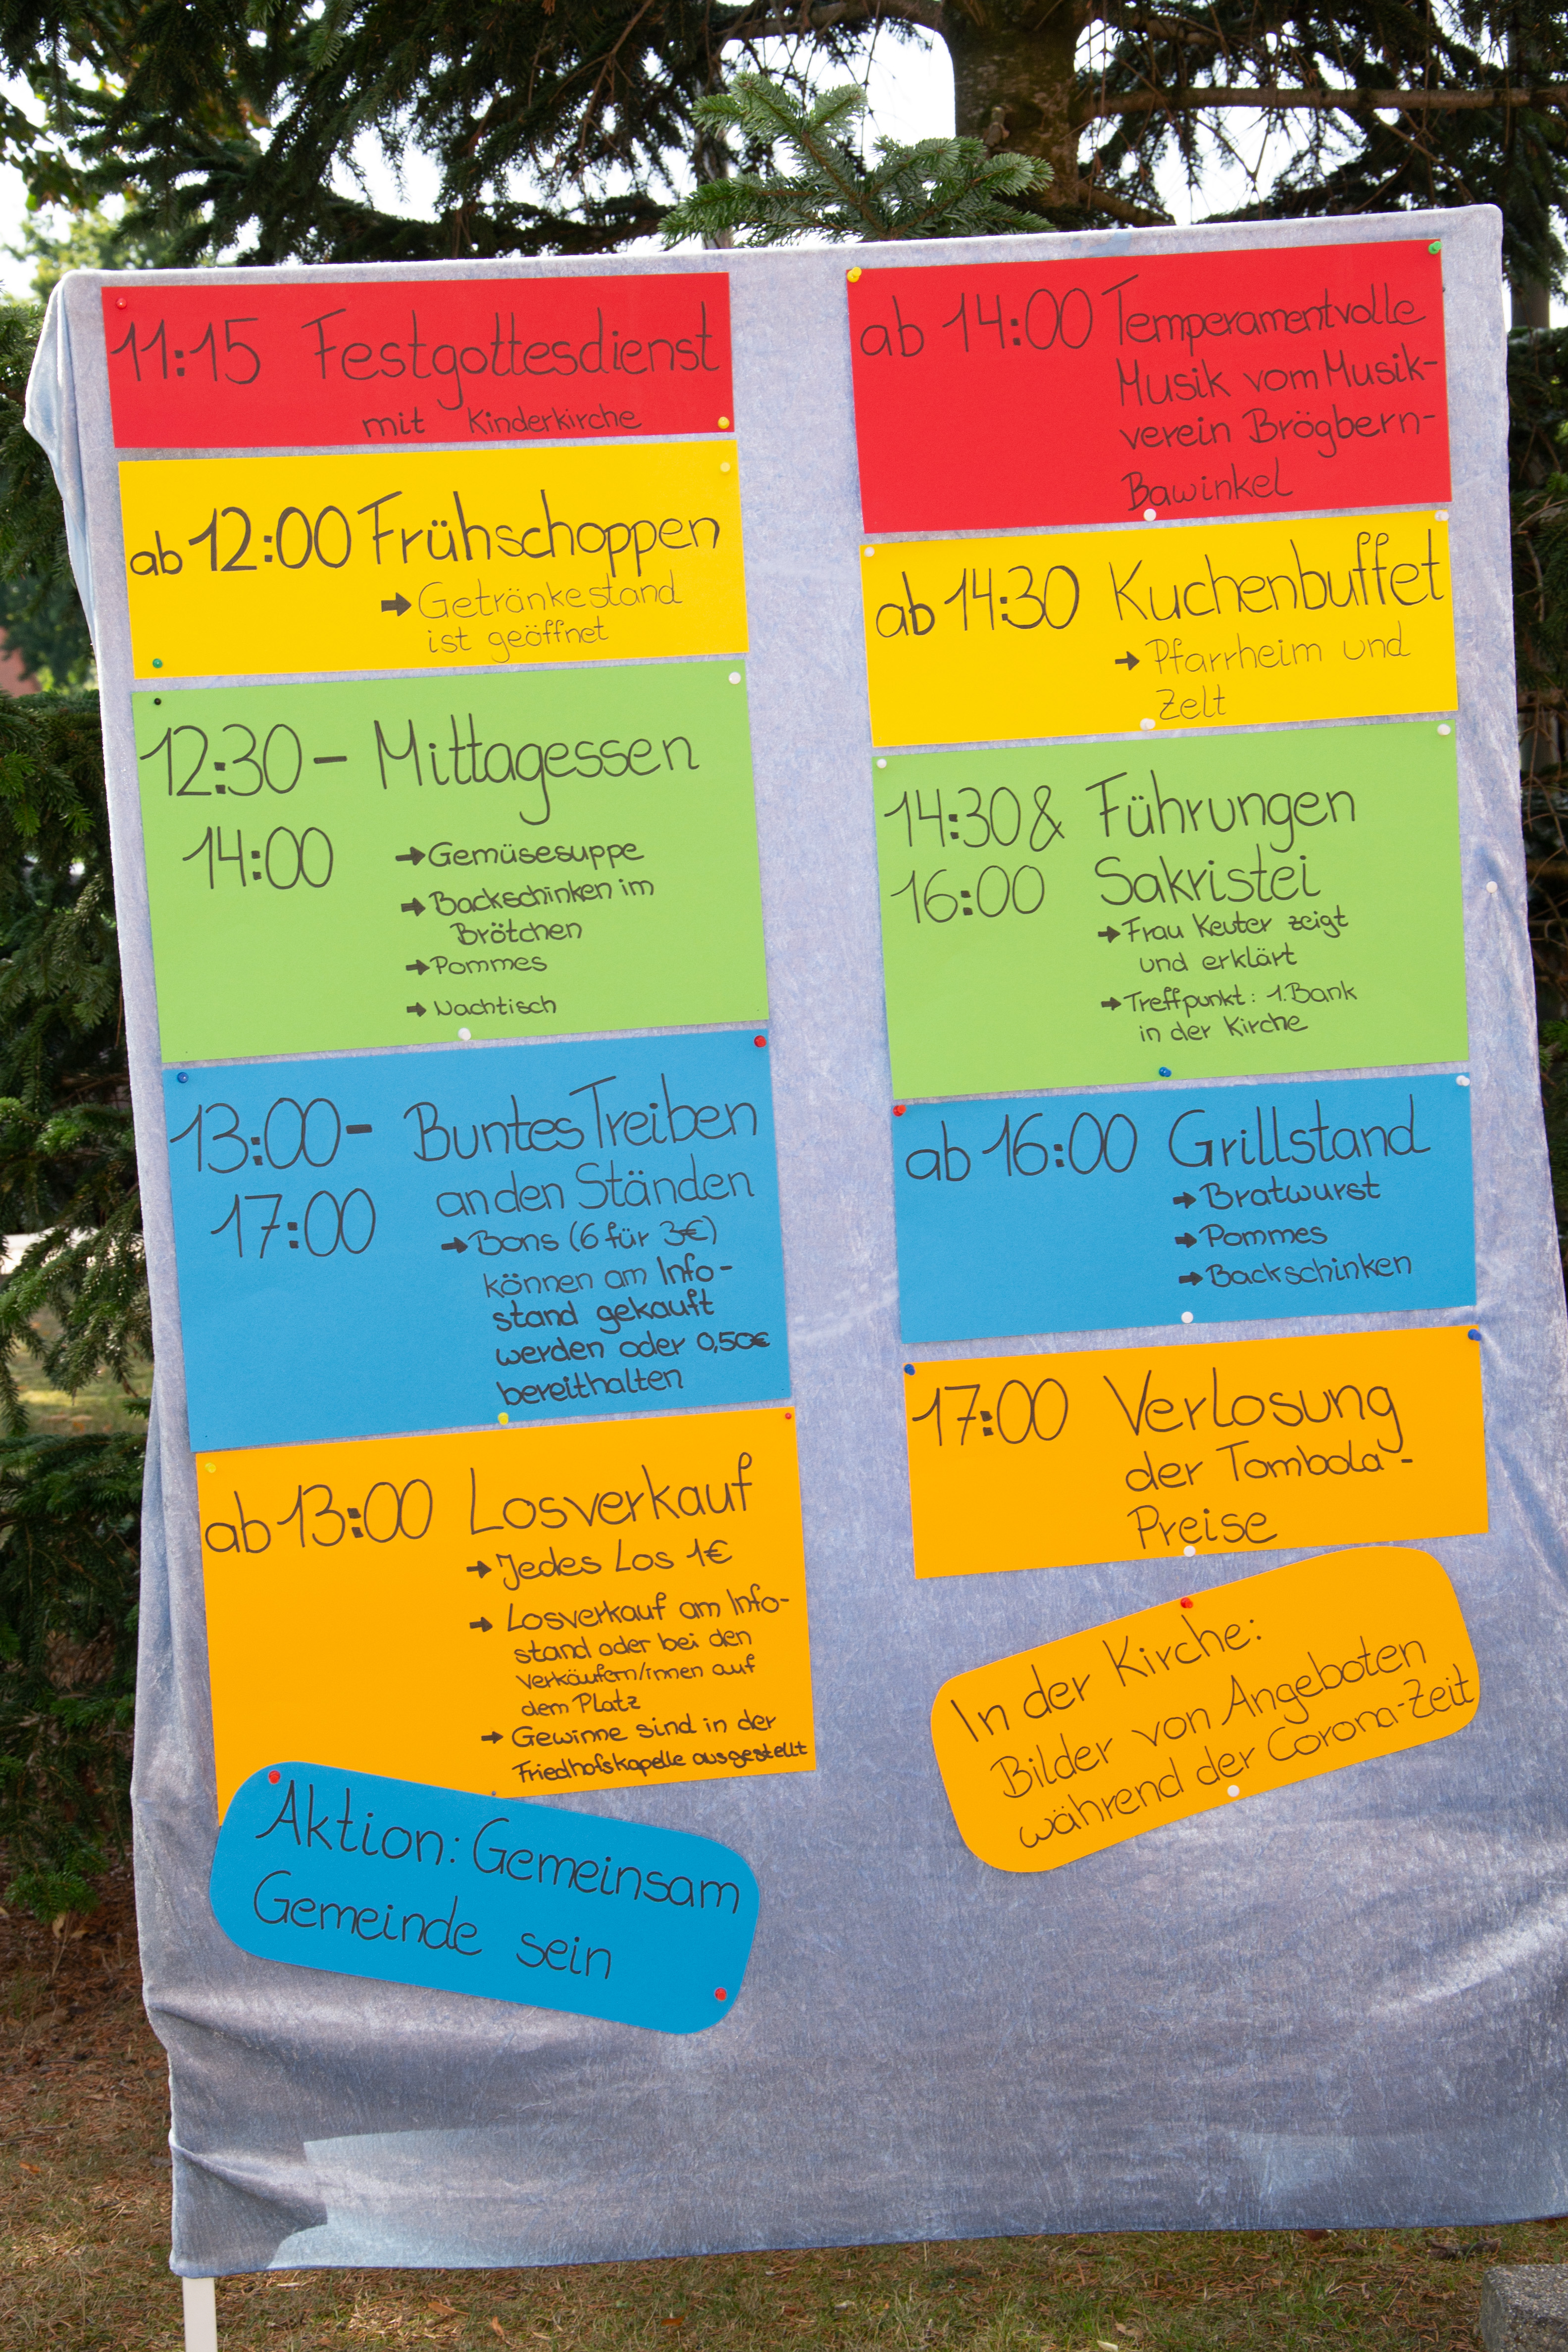 11:15 Festgottesdienst
mit Kinderkirche
ab 12:00 Frühschoppen
➔ Getränkestand
ist geöffnet
12:30 – Mittagessen
14:00
➔ Gemüsesuppe
➔ Backschinken im
Brötchen
➔ Pommes
➔ Nachtisch
13:00 – Buntes Treiben
17:00 an den Ständen
➔ Bons (6 für 3€)
können am Info-
stand gekauft
werden oder 0,50€
bereithalten
ab 13:00 Losverkauf
➔ Jedes Los 1€
➔ Losverkauf am Info-
stand oder bei den
Verkäufern/innen auf
dem Platz
➔ Gewinne sind in der
Friedhofskapelle ausgestellt
Aktion: Gemeinsam
Gemeinde sein
ab 14:00 Temperamentvolle
Musik vom Musik-
verein Brögbern-
Bawinkel
ab 14:30 Kuchenbuffet
➔ Pfarrheim und
Zelt
14:30 & Führungen
16:00 Sakristei
➔ Frau Keuter zeigt
und erklärt
➔ Treffpunkt: 1. Bank
in der Kirche
ab 16:00 Grillstand
➔ Bratwurst
➔ Pommes
➔ Backschinken
17:00 Verlosung
der Tombola-
Preise
In der Kirche:
Bilder von Angeboten
während der Corona-Zeit